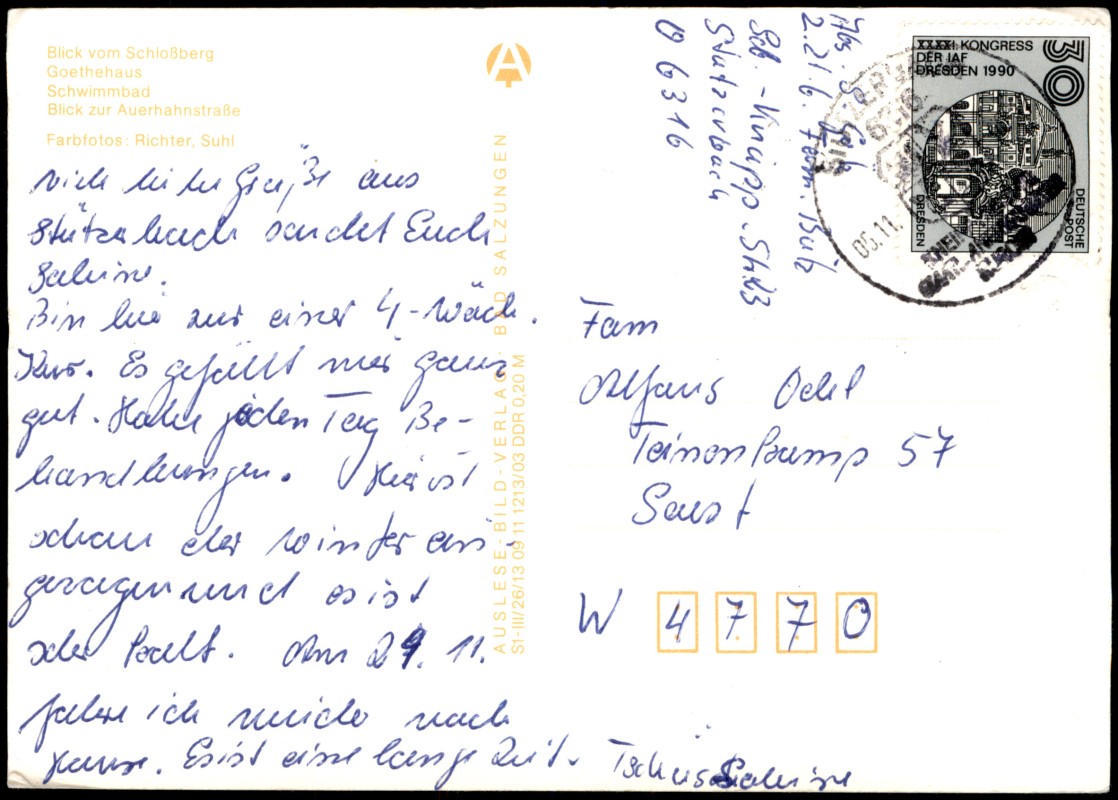 Blick vom Schloßberg
Goethehaus
Schwimmbad
Blick zur Auerhahnstraße
Farbfotos: Richter, Suhl
viele liebe Grüße aus
Stützerbach sendet Euch
Sabine.
Bin hier zur einer 4-wöch.
Kur. Es gefällt mir ganz
gut. Habe jeden Tag Be-
handlungen. Hier ist
schon der Winter ein-
gezogen und es ist
sehr kalt. Am 29. 11.
fahre ich wieder nach
Hause. Es ist eine lange Zeit. Tschüs Sabine
AUSLESE-BILD-VERLAG · BAD SALZUNGEN
S1-III/26/13 09 11 1213/03 DDR 0,20 M
Abs. S.
2.21.6.
Seb.-Kneipp-Str. 23
Stützerbach
O 6316
XXXXI. KONGRESS
DER IAF
DRESDEN 1990
30
DEUTSCHE
POST
DRESDEN
STÜTZERBACH
6316
05.11.
Fam
57
Soest
W 4770